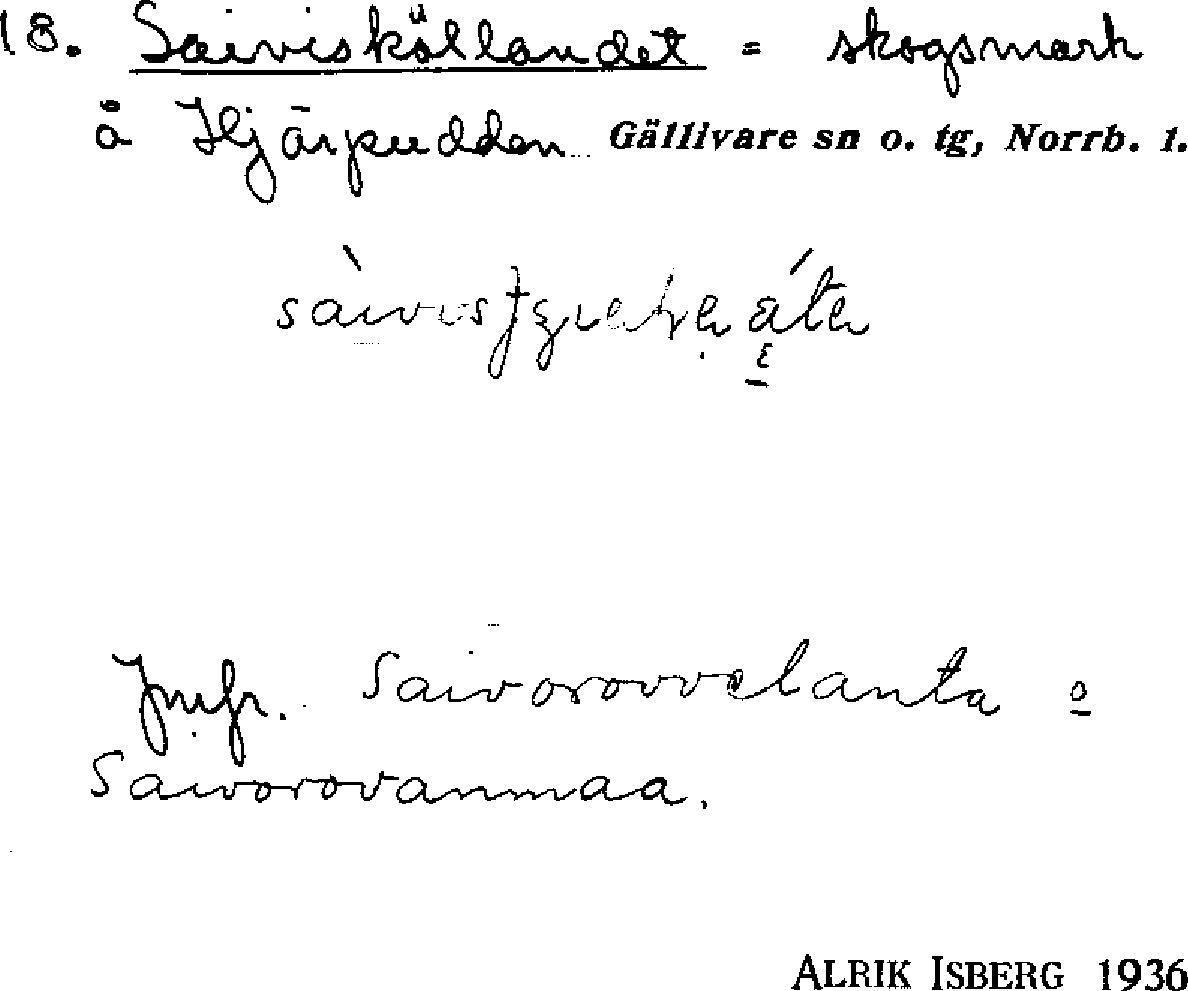 18. Saivisköllandet = skogsmark
å Hjärpudden Gällivare sn o. tg, Norrb. l.
Jmfr. Saivorovvelanta o
Saivorovanmaa.
ALRIK ISBERG 1936